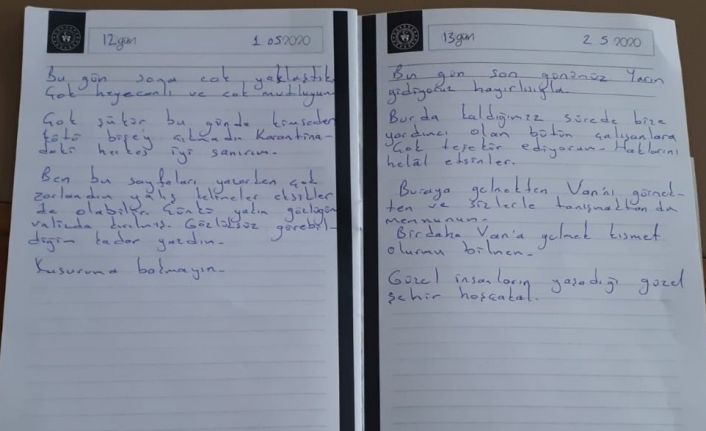 12.gün 1 05 2020
Bu gün sona cok yaklaştık
Çok heyecanlı ve cok mutluyum
Çok şükür bu günde kimseden
kötü bişey çıkmadı. Karantina-
daki herkes iyi sanırım.
Ben bu sayfaları yazarken çok
zorlandım yalnış kelimeler eksikler
de olabilir. Çünkü yakın gözlüğüm
valizda kırılmış. Gözlüksüz görebil-
diğim kadar yazdım.
Kusuruma bakmayın.
13.gün 2 5 2020
Bu gün son günümüz Yarın
gidiyoruz hayırlısıyla.
Burda kaldığımız sürede bize
yardımcı olan bütün çalışanlara
Çok teşekür ediyorum. Haklarını
helâl etsinler.
Buraya gelmekten Van'ı görmek-
ten ve sizlerle tanışmaktan da
memnunum.
Birdaha Van'a gelmek kısmet
olurmu bilmem.
Güzel insanların yaşadığı güzel
şehir hoşcakal.